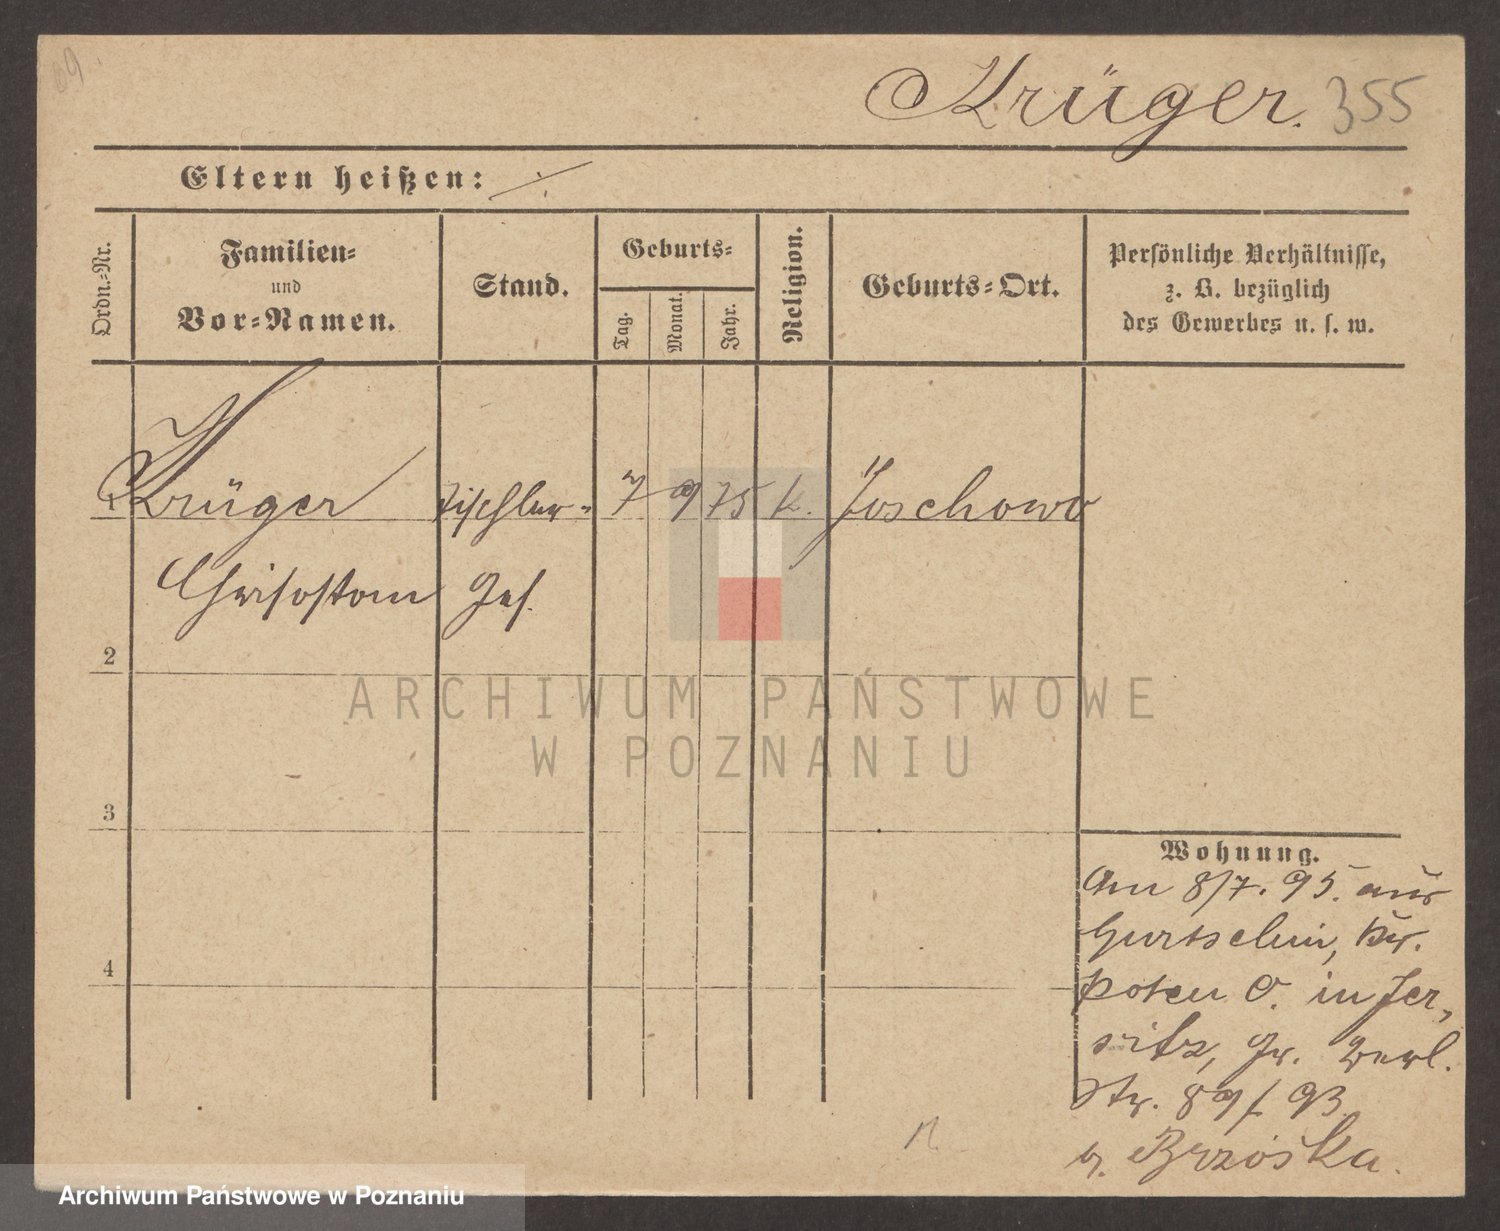 89.
Krüger. 355
Eltern heißen: ·/·
Ordn.-Nr.
Familien-
und
Vor-Namen.
Stand.
Geburts-
Tag.
Monat.
Jahr.
Religion.
Geburts-Ort.
Persönliche Verhältnisse,
z. B. bezüglich
des Gewerbes u. s. w.
1 Krüger Tischler- 7 9 75 k. Joschowo
Chrisostom Ges.
2
3
4
Wohnung.
Am 8/7. 95. aus
Gurtschin, Kr.
Posen O. in Jer,
sitz, Gr. Berl.
Str. 89/93
b. Brzóska.
ARCHIWUM PAŃSTWOWE
W POZNANIU
Archiwum Państwowe w Poznaniu